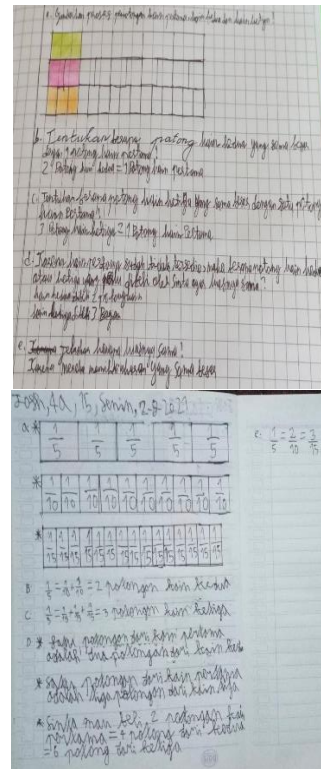 a. Gambarlah proses pemotongan kain pertama kain kedua dan kain ketiga!
b. Tentukan berapa potong kain kedua yang sama besar
dengan 1 potong kain pertama!
2 Potong kain kedua = 1 Potong kain pertama
c. Tentukan berapa potong kain ketiga yang sama besar dengan satu potong
kain Pertama!
3 Potong kain ketiga = 1 Potong kain Pertama
d. kain pertama sudah tidak tersedia, maka berapa potong kain
atau ketiga yang dibeli oleh Sinta agar luasnya sama?
kain
kain ketiga 3
e. Jelaskan kenapa luasnya sama!
Karena mereka yang sama besar
4a, 15, Senin,
a * 1/5 1/5 1/5 1/5 1/5
* 1/10 1/10 1/10 1/10 1/10 1/10 1/10 1/10 1/10 1/10
* 1/15 1/15 1/15 1/15 1/15 1/15 1/15 1/15 1/15 1/15 1/15 1/15 1/15 1/15 1/15
B 1/5 = 1/10 + 1/10 = 2 potongan kain kedua
C = 3 potongan kain ketiga
D * Satu potongan dari kain pertama
adalah dua potongan dari kain
* Satu potongan dari kain pertama
adalah tiga potongan dari kain tiga
* Sinta mau beli 2 potongan kain
pertama = 4 potong dari kedua
= 6 potong dari ketiga
e. 1/5 = 2/10 = 3/15